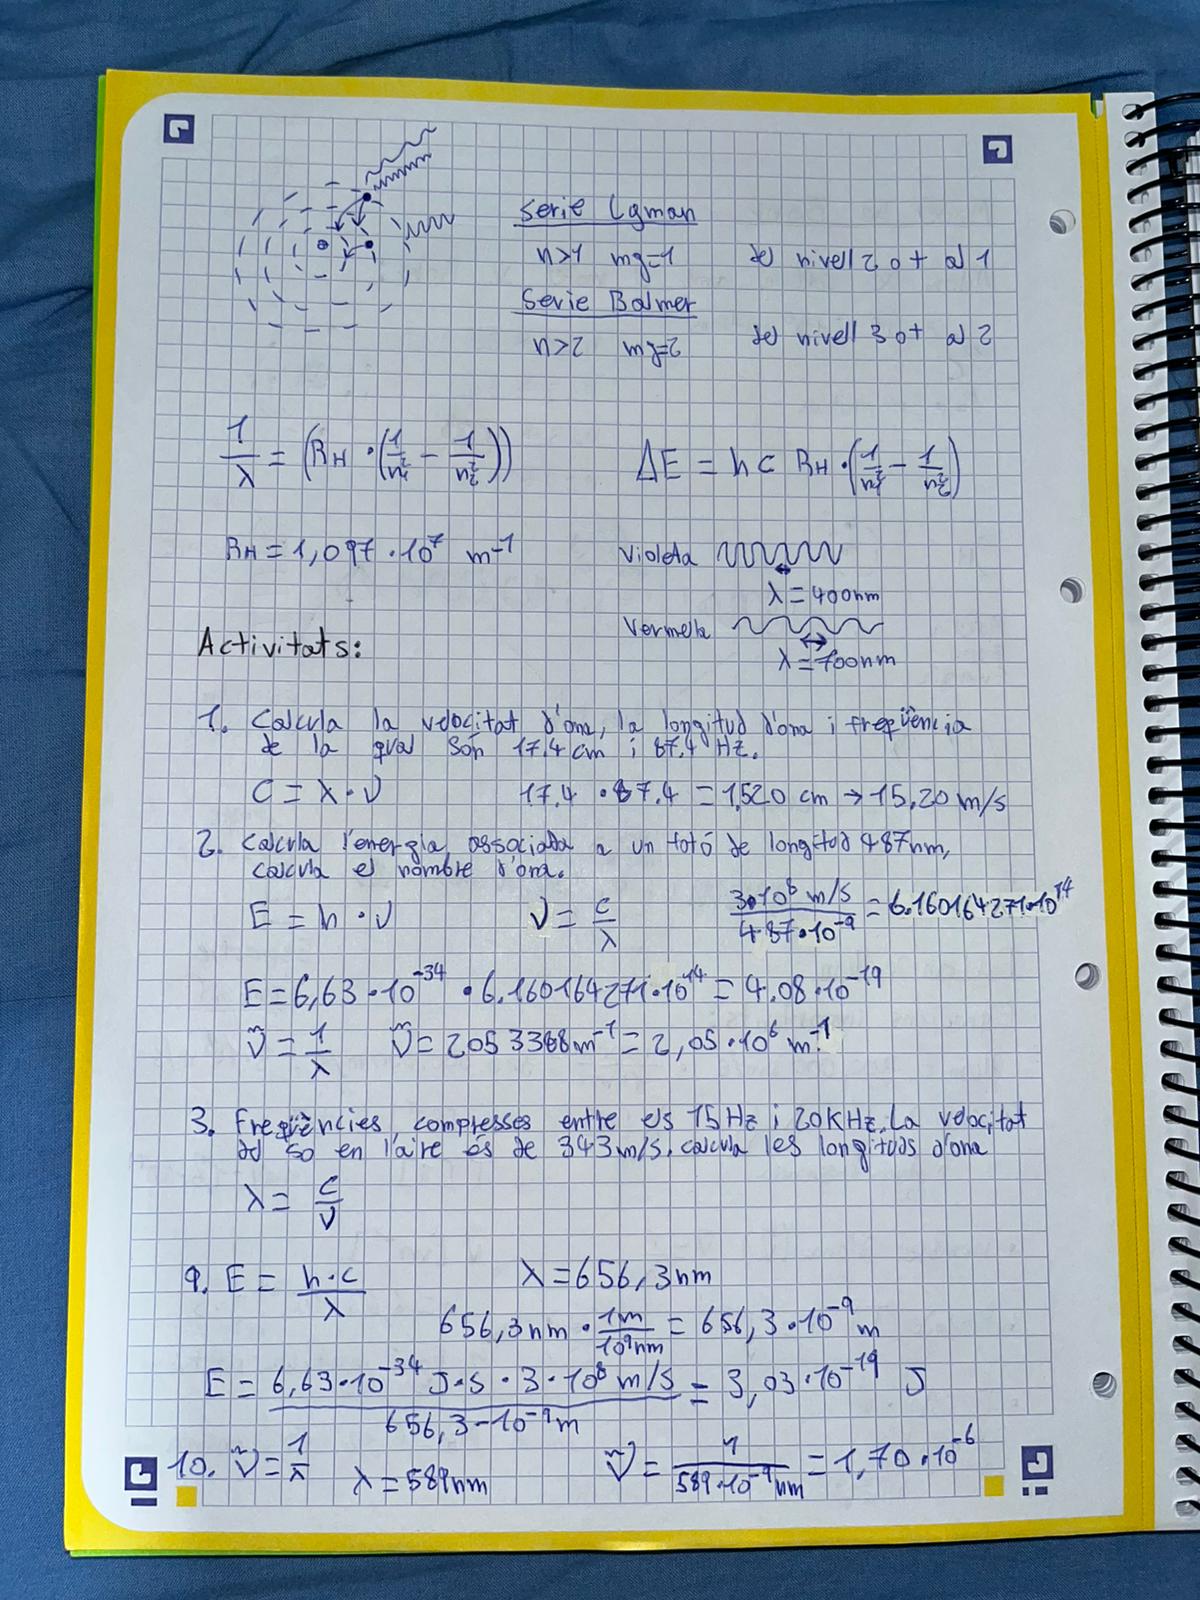 Serie Lyman
n>1 mg=1 del nivell 2 o + al 1
Serie Balmer
n>2 mg=2 del nivell 3 o + al 2
1/λ = (RH · (1/n₁² − 1/n₂²))
ΔE = h c RH · (1/n₁² − 1/n₂²)
RH = 1,097 · 10⁷ m⁻¹
Violeta
λ = 400nm
Vermella
λ = 700nm
Activitats:
1. Calcula la velocitat d'ona, la longitud d'ona i freqüència
de la qual són 17.4 cm i 87.4 Hz.
C = λ · ν 17.4 · 87.4 = 1,520 cm → 15.20 m/s
2. Calcula l'energia associada a un fotó de longitud 487nm,
calcula el nombre d'ona.
E = h · ν ν = c/λ 3·10⁸ m/s / 487·10⁻⁹ = 6.160164271·10¹⁴
E = 6,63·10⁻³⁴ · 6.160164271·10¹⁴ = 4.08·10⁻¹⁹
ν̃ = 1/λ ν̃ = 2053388m⁻¹ = 2,05·10⁶ m⁻¹
3. Freqüències compresses entre els 15Hz i 20KHz. La velocitat
del so en l'aire és de 343m/s. calcula les longituds d'ona
λ = c/ν
9. E = h·c/λ λ = 656,3nm
656,3nm · 1m/10⁹nm = 656,3·10⁻⁹ m
E = 6,63·10⁻³⁴ J·s · 3·10⁸ m/s / 656,3·10⁻⁹m = 3,03·10⁻¹⁹ J
10. ν̃ = 1/λ λ = 589nm ν̃ = 1/589·10⁻⁹nm = 1,70·10⁻⁶